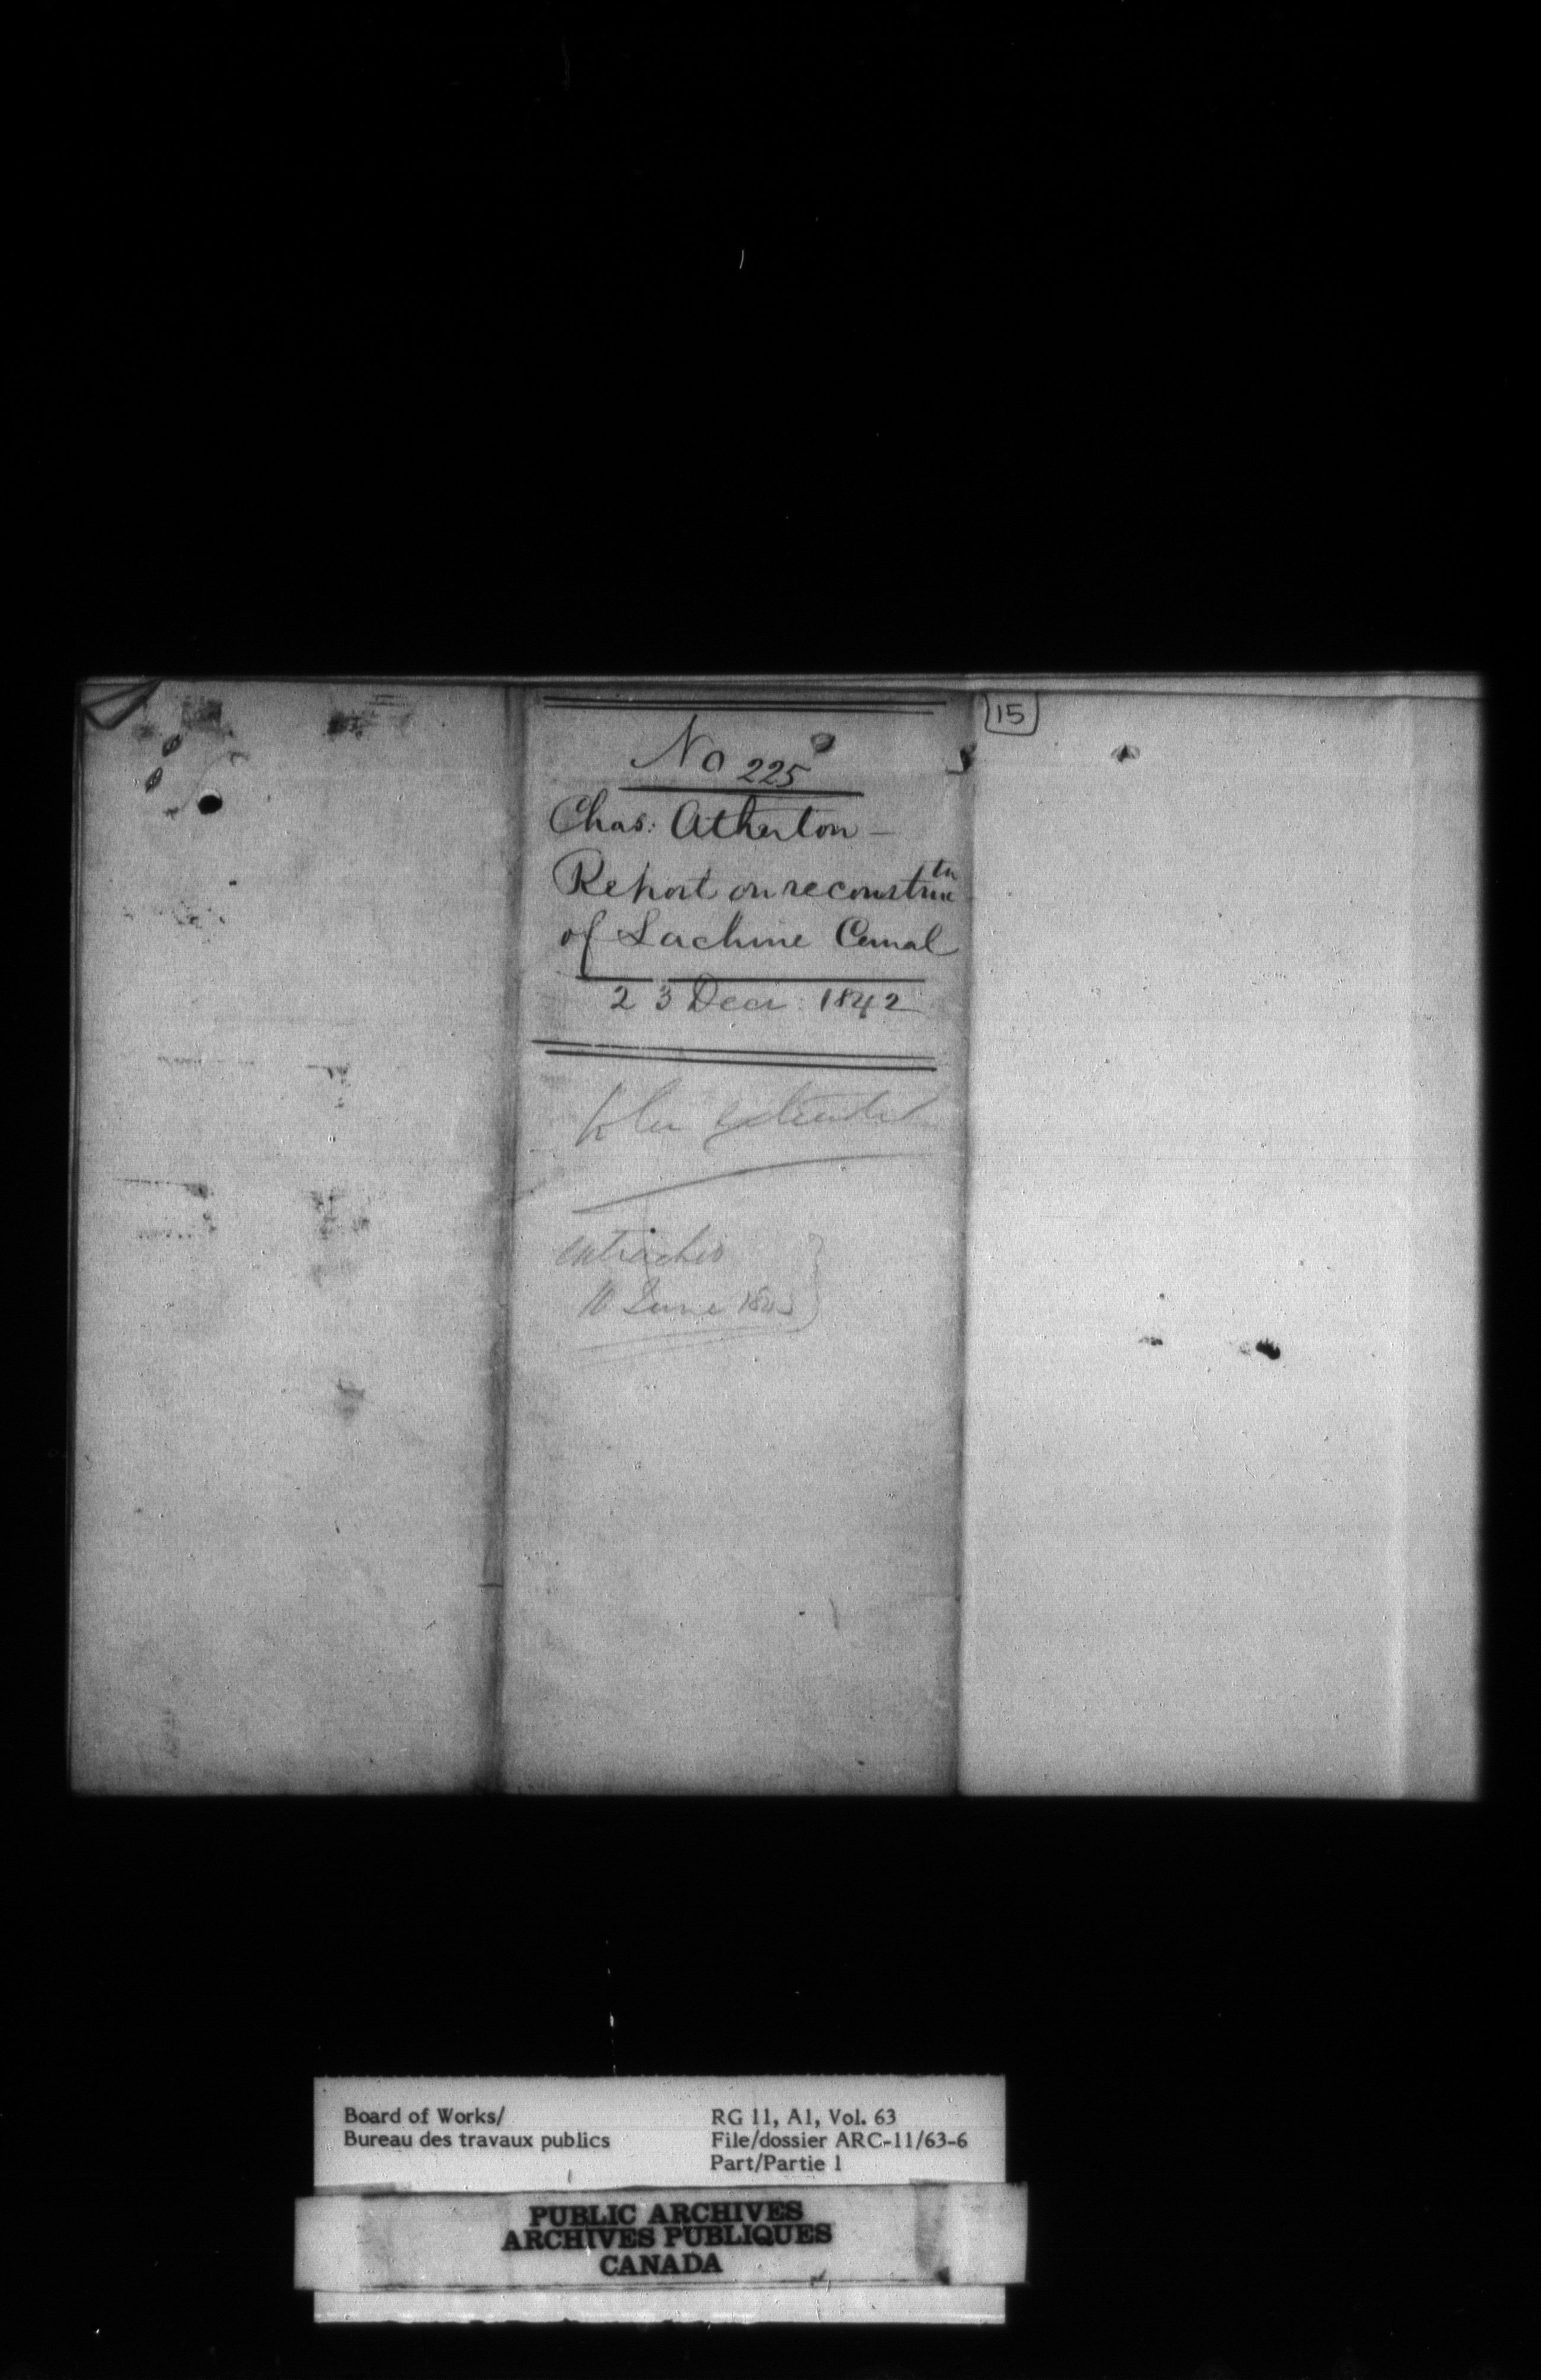 15
No 225
Chas: Atherton –
Report on reconstruc tn
of Lachine Canal
23 Decr: 1842
10 June 184
Board of Works/
Bureau des travaux publics
RG 11, A1, Vol. 63
File/dossier ARC-11/63-6
Part/Partie 1
PUBLIC ARCHIVES
ARCHIVES PUBLIQUES
CANADA